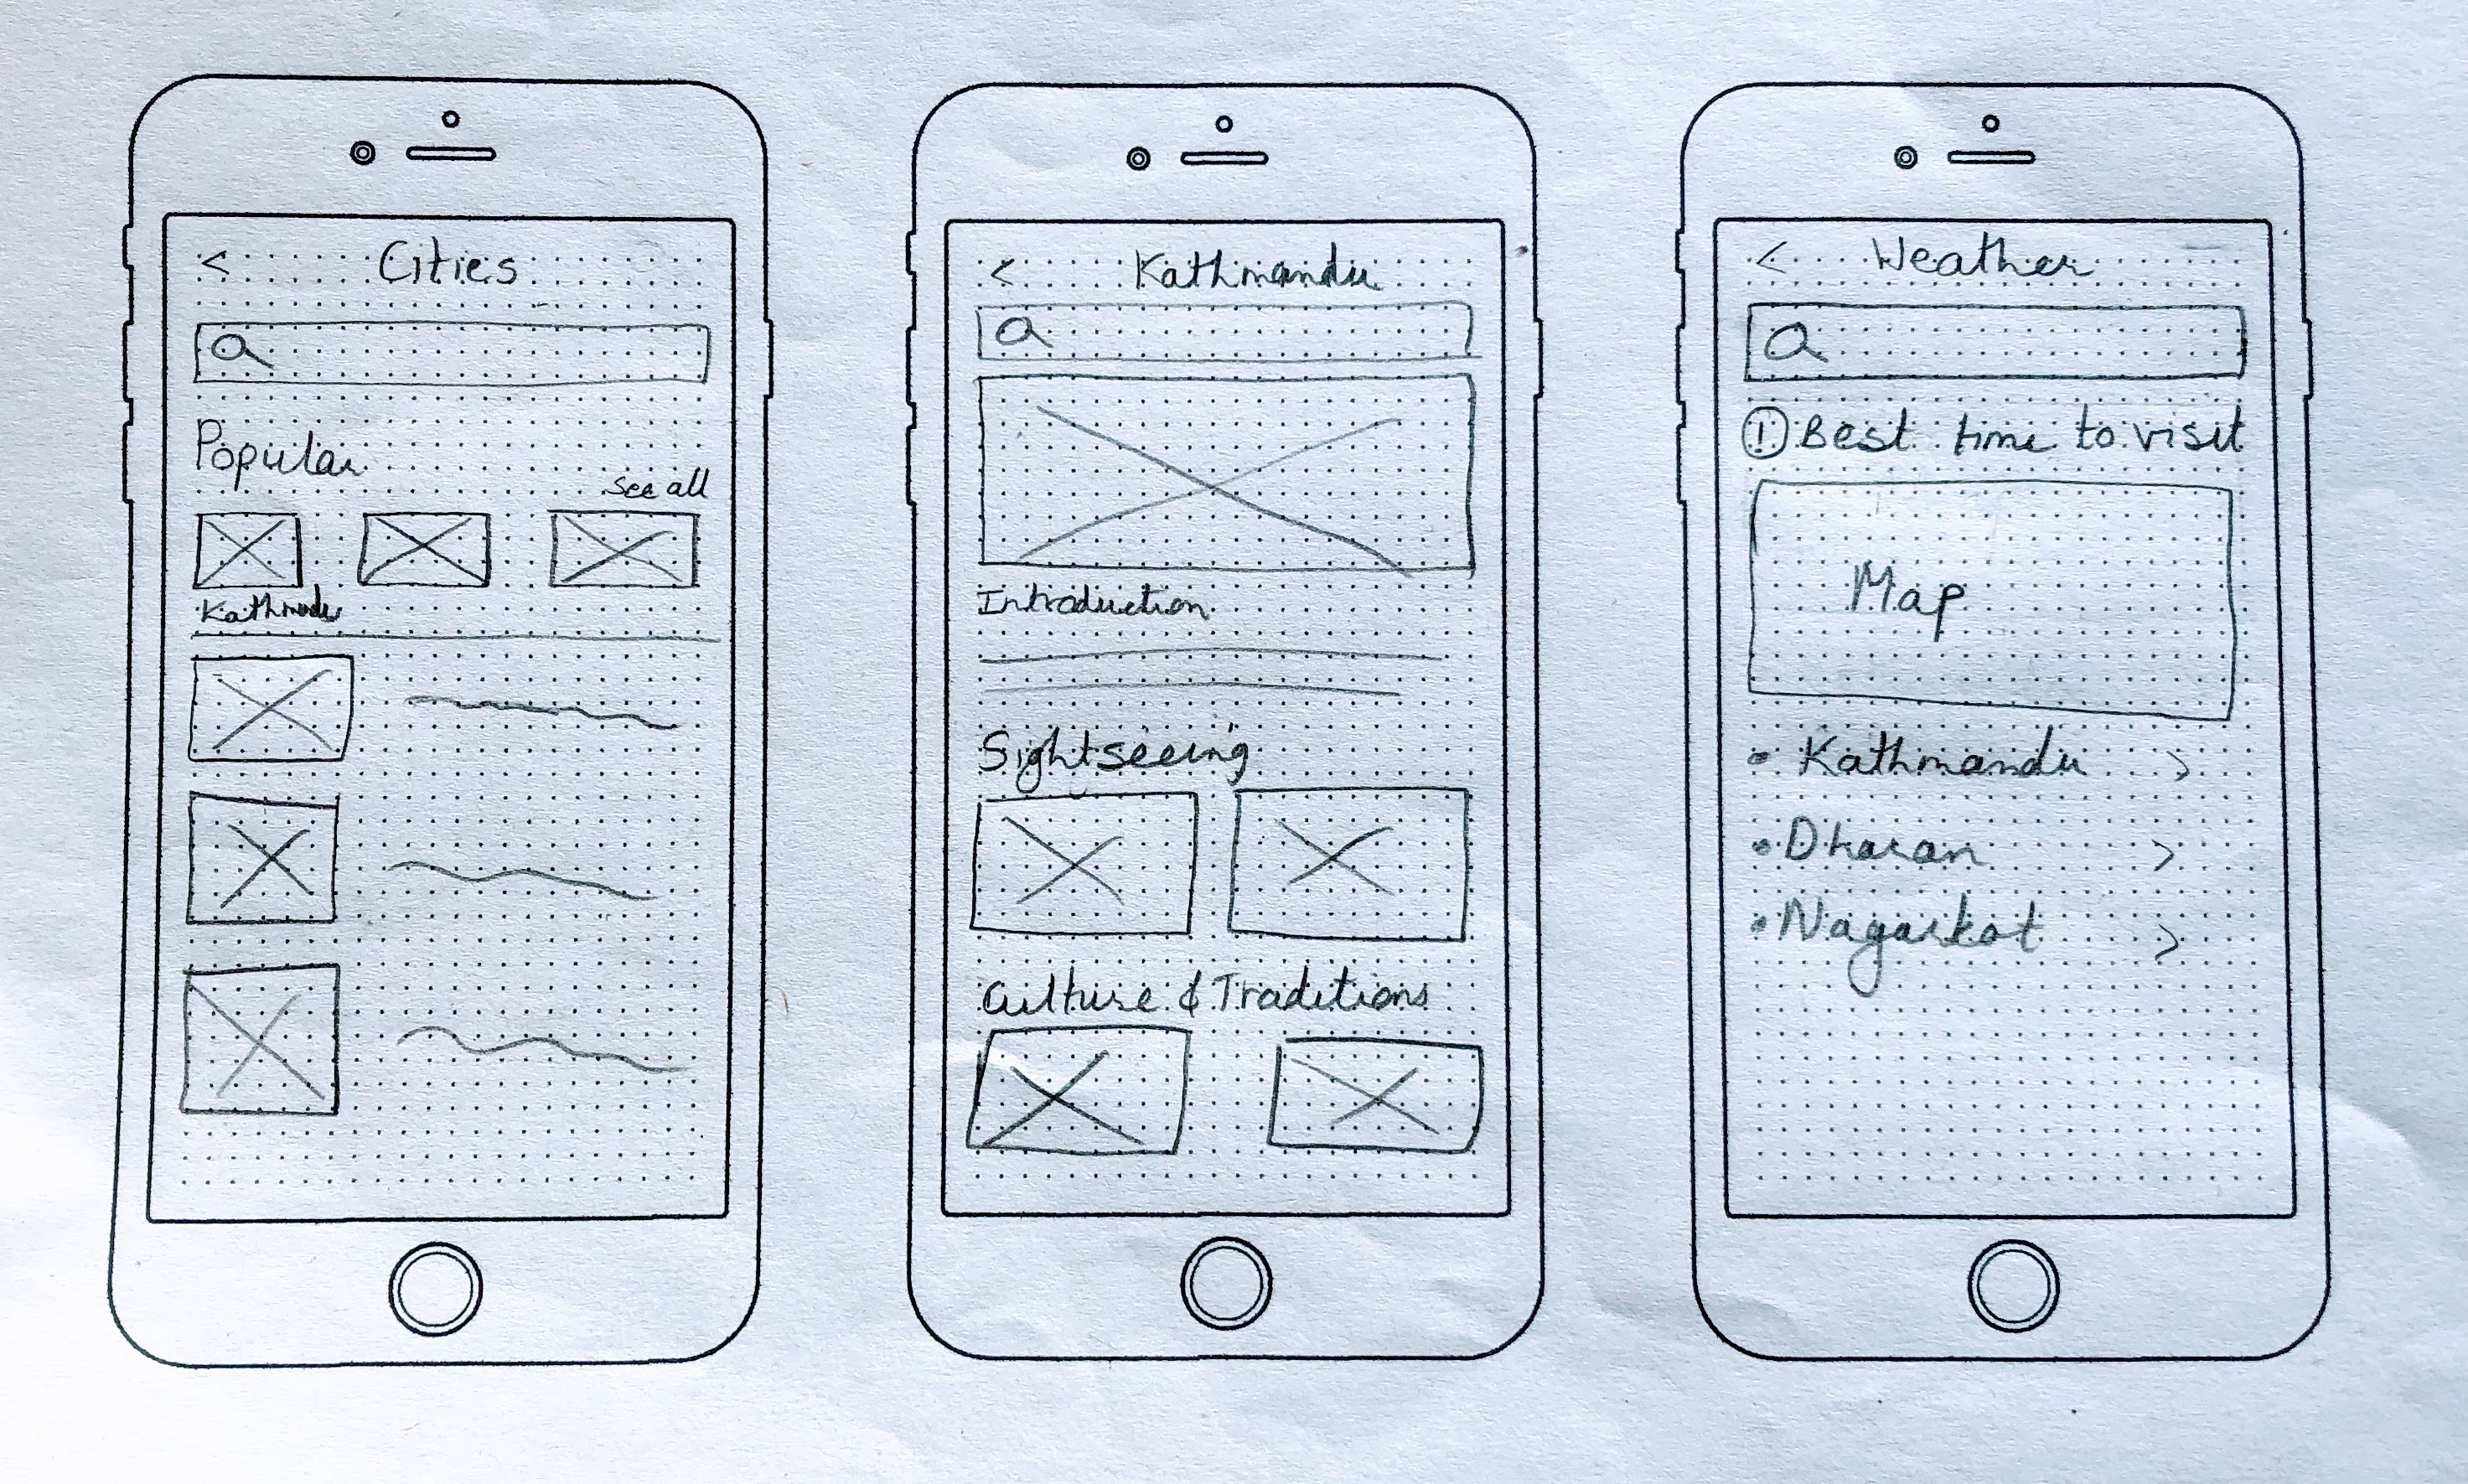 < Cities
Popular
See all
Kathmandu
< Kathmandu
Introduction
Sightseeing
Culture & Traditions
< Weather
! Best time to visit
Map
• Kathmandu >
• Dharan >
• Nagarkot >